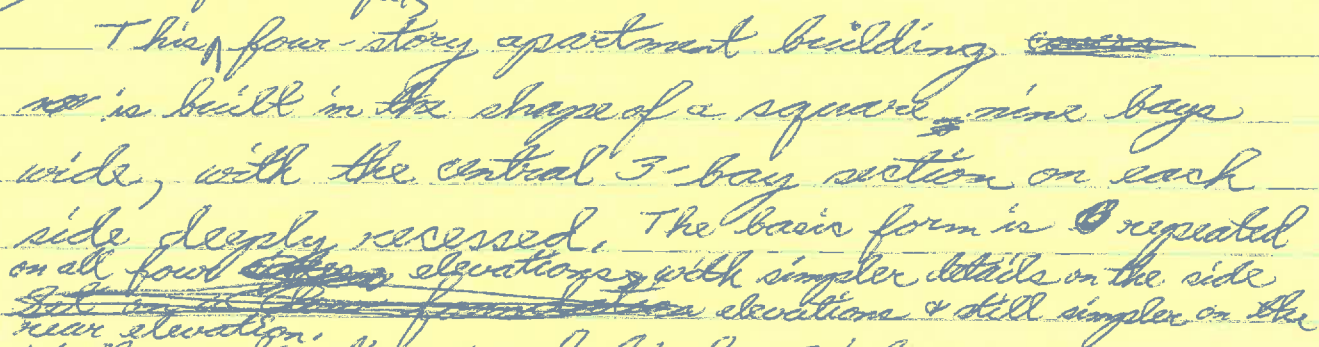 This ‸ four-story apartment building
is built in the shape of a square, nine bays
wide, with the central 3-bay section on each
side deeply recessed. The basic form is repeated
on all four elevations, with simpler details on the side
elevations & still simpler on the
rear elevation.